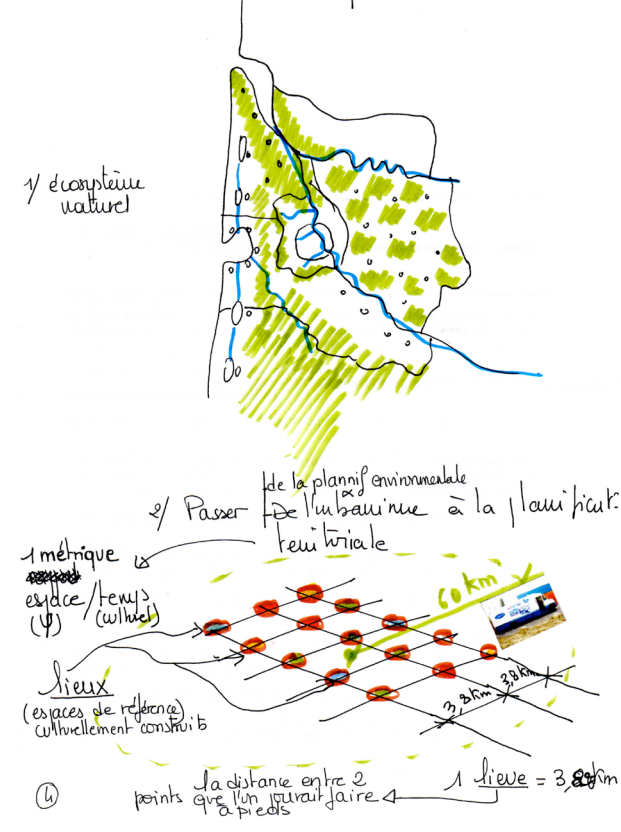 1/ écosystème
naturel
de la plannif environmentale
2/ Passer De l'urbanisme à la planificat.
territoriale
1 métrique
espace/temps
(ψ) (culturel)
60 km
lieux
(espaces de référence)
culturellement construits
3,8 km
3,8 km
la distance entre 2
points que l'on pouvait faire
à pieds
1 lieue = 3,88 km
4